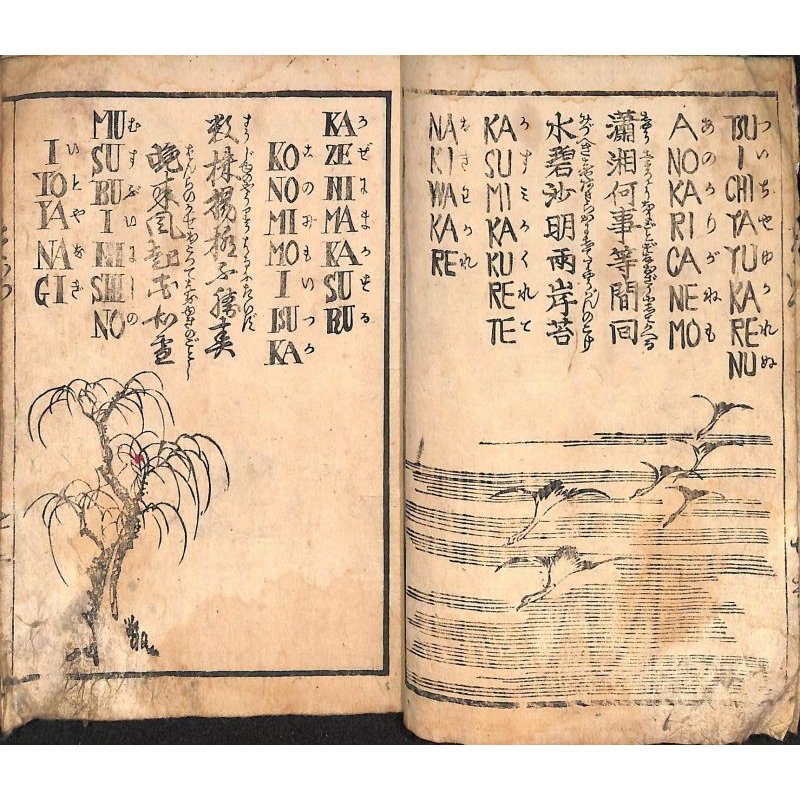 TSU I CHI YA YU KA RE NU
ついちやゆかれぬ
A NO KA RI CA NE MO
あのかりがねも
瀟湘何事等間回
水碧沙明兩岸苔
KA SU MI KA KU RE TE
かすミかくれて
NA KI WA KA RE
なきわかれ
KA ZE NI MA KA SU RU
かぜにまかする
KO NO MI MO I TSU KA
このみもいつか
数株楊柳不勝春
晩来風起花如雪
MU SU BU I NI SHI NO
むすぶいにしの
I TO YA NA GI
いとやなぎ